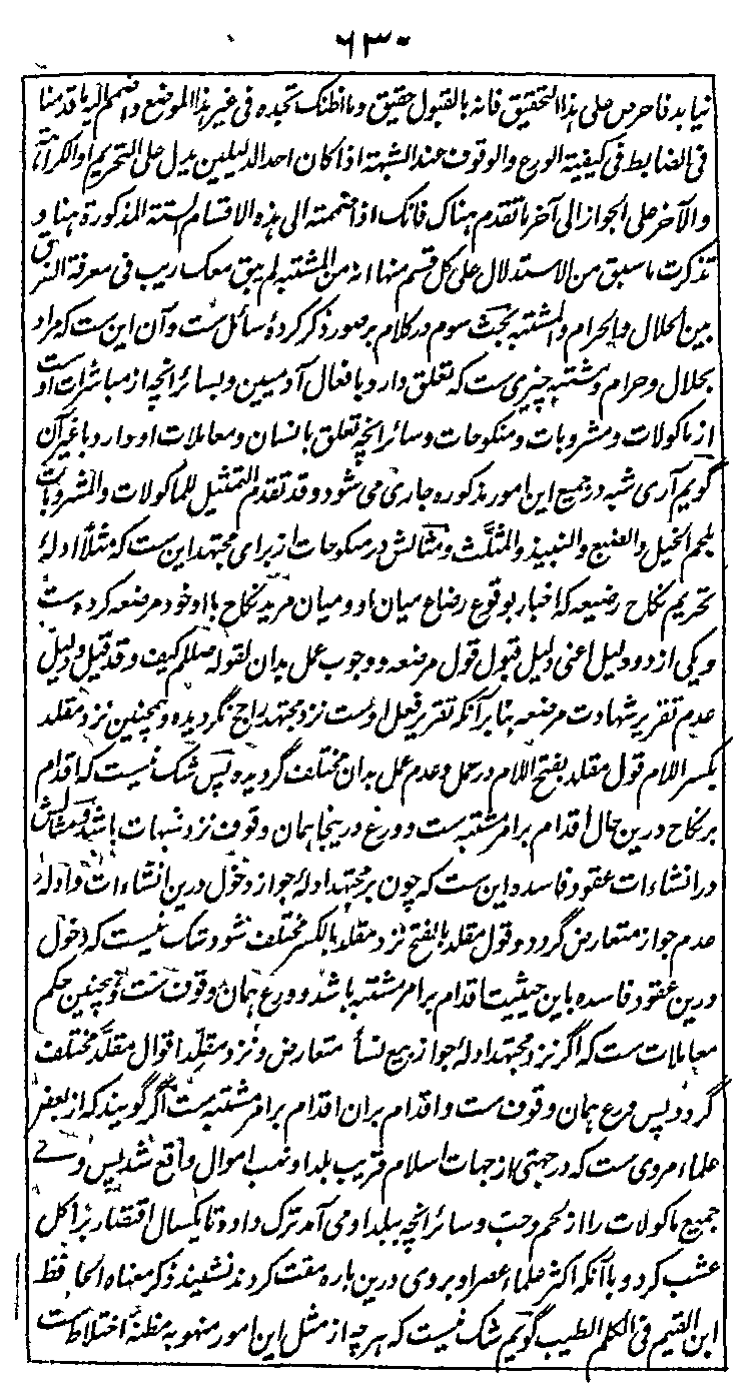 ۶۳۰
نیاید فاحرص علی هذا التحقیق فانه بالقبول حقیق وما اظنک تجده فی غیر هذا الموضع واضمم الیه ما قدمنا
فی الضابط فی کیفیة الورع والوقوف عند الشبهة اذا کان احد الدلیلین یدل علی التحریم او الکراهة
والآخر علی الجواز الی آخر ما تقدم هناک فانک اذا ضممته الی هذه الاقسام الستة المذکورة هنا و
تذکرت ما سبق من الاستدلال علی کل قسم منها انه من المشتبه لم یبق معک ریب فی معرفة الفرق
بین الحلال والحرام والمشتبه بحث سوم در کلام بر صور ذکر کردهٔ سائل ست وآن این ست که مراد
بحلال وحرام ومشتبه چیزی ست که تعلق دارد بافعال آدمیین وبسائر انچه از مباشرات اوست
از ماکولات ومشروبات ومنکوحات وسائر انچه تعلق بانسان ومعاملات او دارد با غیر آن
گویم آری شبه در جمیع این امور مذکوره جاری می شود وقد تقدم التمثیل للماکولات والمشروبات
بلحم الخیل والضبع والنبیذ والمثلث ومثالش در منکوحات از برای مجتهد این ست که مثلا ادلهٔ
تحریم نکاح رضیعه که اخبار بوقوع رضاع میان او ومیان مرید نکاح با او خود مرضعه کرده ست
ویکی از دو دلیل اعنی دلیل قبول قول مرضعه ووجوب عمل بدان لقوله صللم کیف وقد قیل ودلیل
عدم تقریر شهادت مرضعه بنا بر آنکه تقریر فعل اوست نزد مجتهد راجح نگردیده وهمچنین نزد مقلد
بکسر اللام قول مقلد بفتح اللام در عمل وعدم عمل بدان مختلف گردیده پس شک نیست که اقدام
بر نکاح درین حال اقدام بر امر مشتبه ست وورع درینجا همان وقوف نزد شبهات باشد ومثالش
در انشاءات عقود فاسده این ست که چون بر مجتهد ادلهٔ جواز دخول درین انشاءات وادلهٔ
عدم جواز متعارض گردد وقول مقلد بالفتح نزد مقلد بالکسر مختلف شود وشک نیست که دخول
درین عقود فاسده باین حیثیت اقدام بر امر مشتبه باشد وورع همان وقوف ست وهمچنین حکم
معاملات ست که اگر نزد مجتهد ادلهٔ جواز بیع نسأ متعارض ونزد مقلِّد اقوال مقلَّد مختلف
گردد پس ورع همان وقوف ست واقدام بران اقدام بر امر مشتبه ست اگر گویند که از بعض
علماء مروی ست که در جهتی از جهات اسلام قریب بلد او نهب اموال واقع شد پس وے
جمیع ماکولات را از لحم وحب وسائر انچه ببلد او می آمد ترک داده تا یکسال اقتصار بر اکل
عشب کرد وبا آنکه اکثر علماء عصر او بر وی درین باره مقت کردند نشنید ذکر معناه الحافظ
ابن القیم فی الکلم الطیب گویم شک نیست که هر چه از مثل این امور منهوبه مظنهٔ اختلاط ست